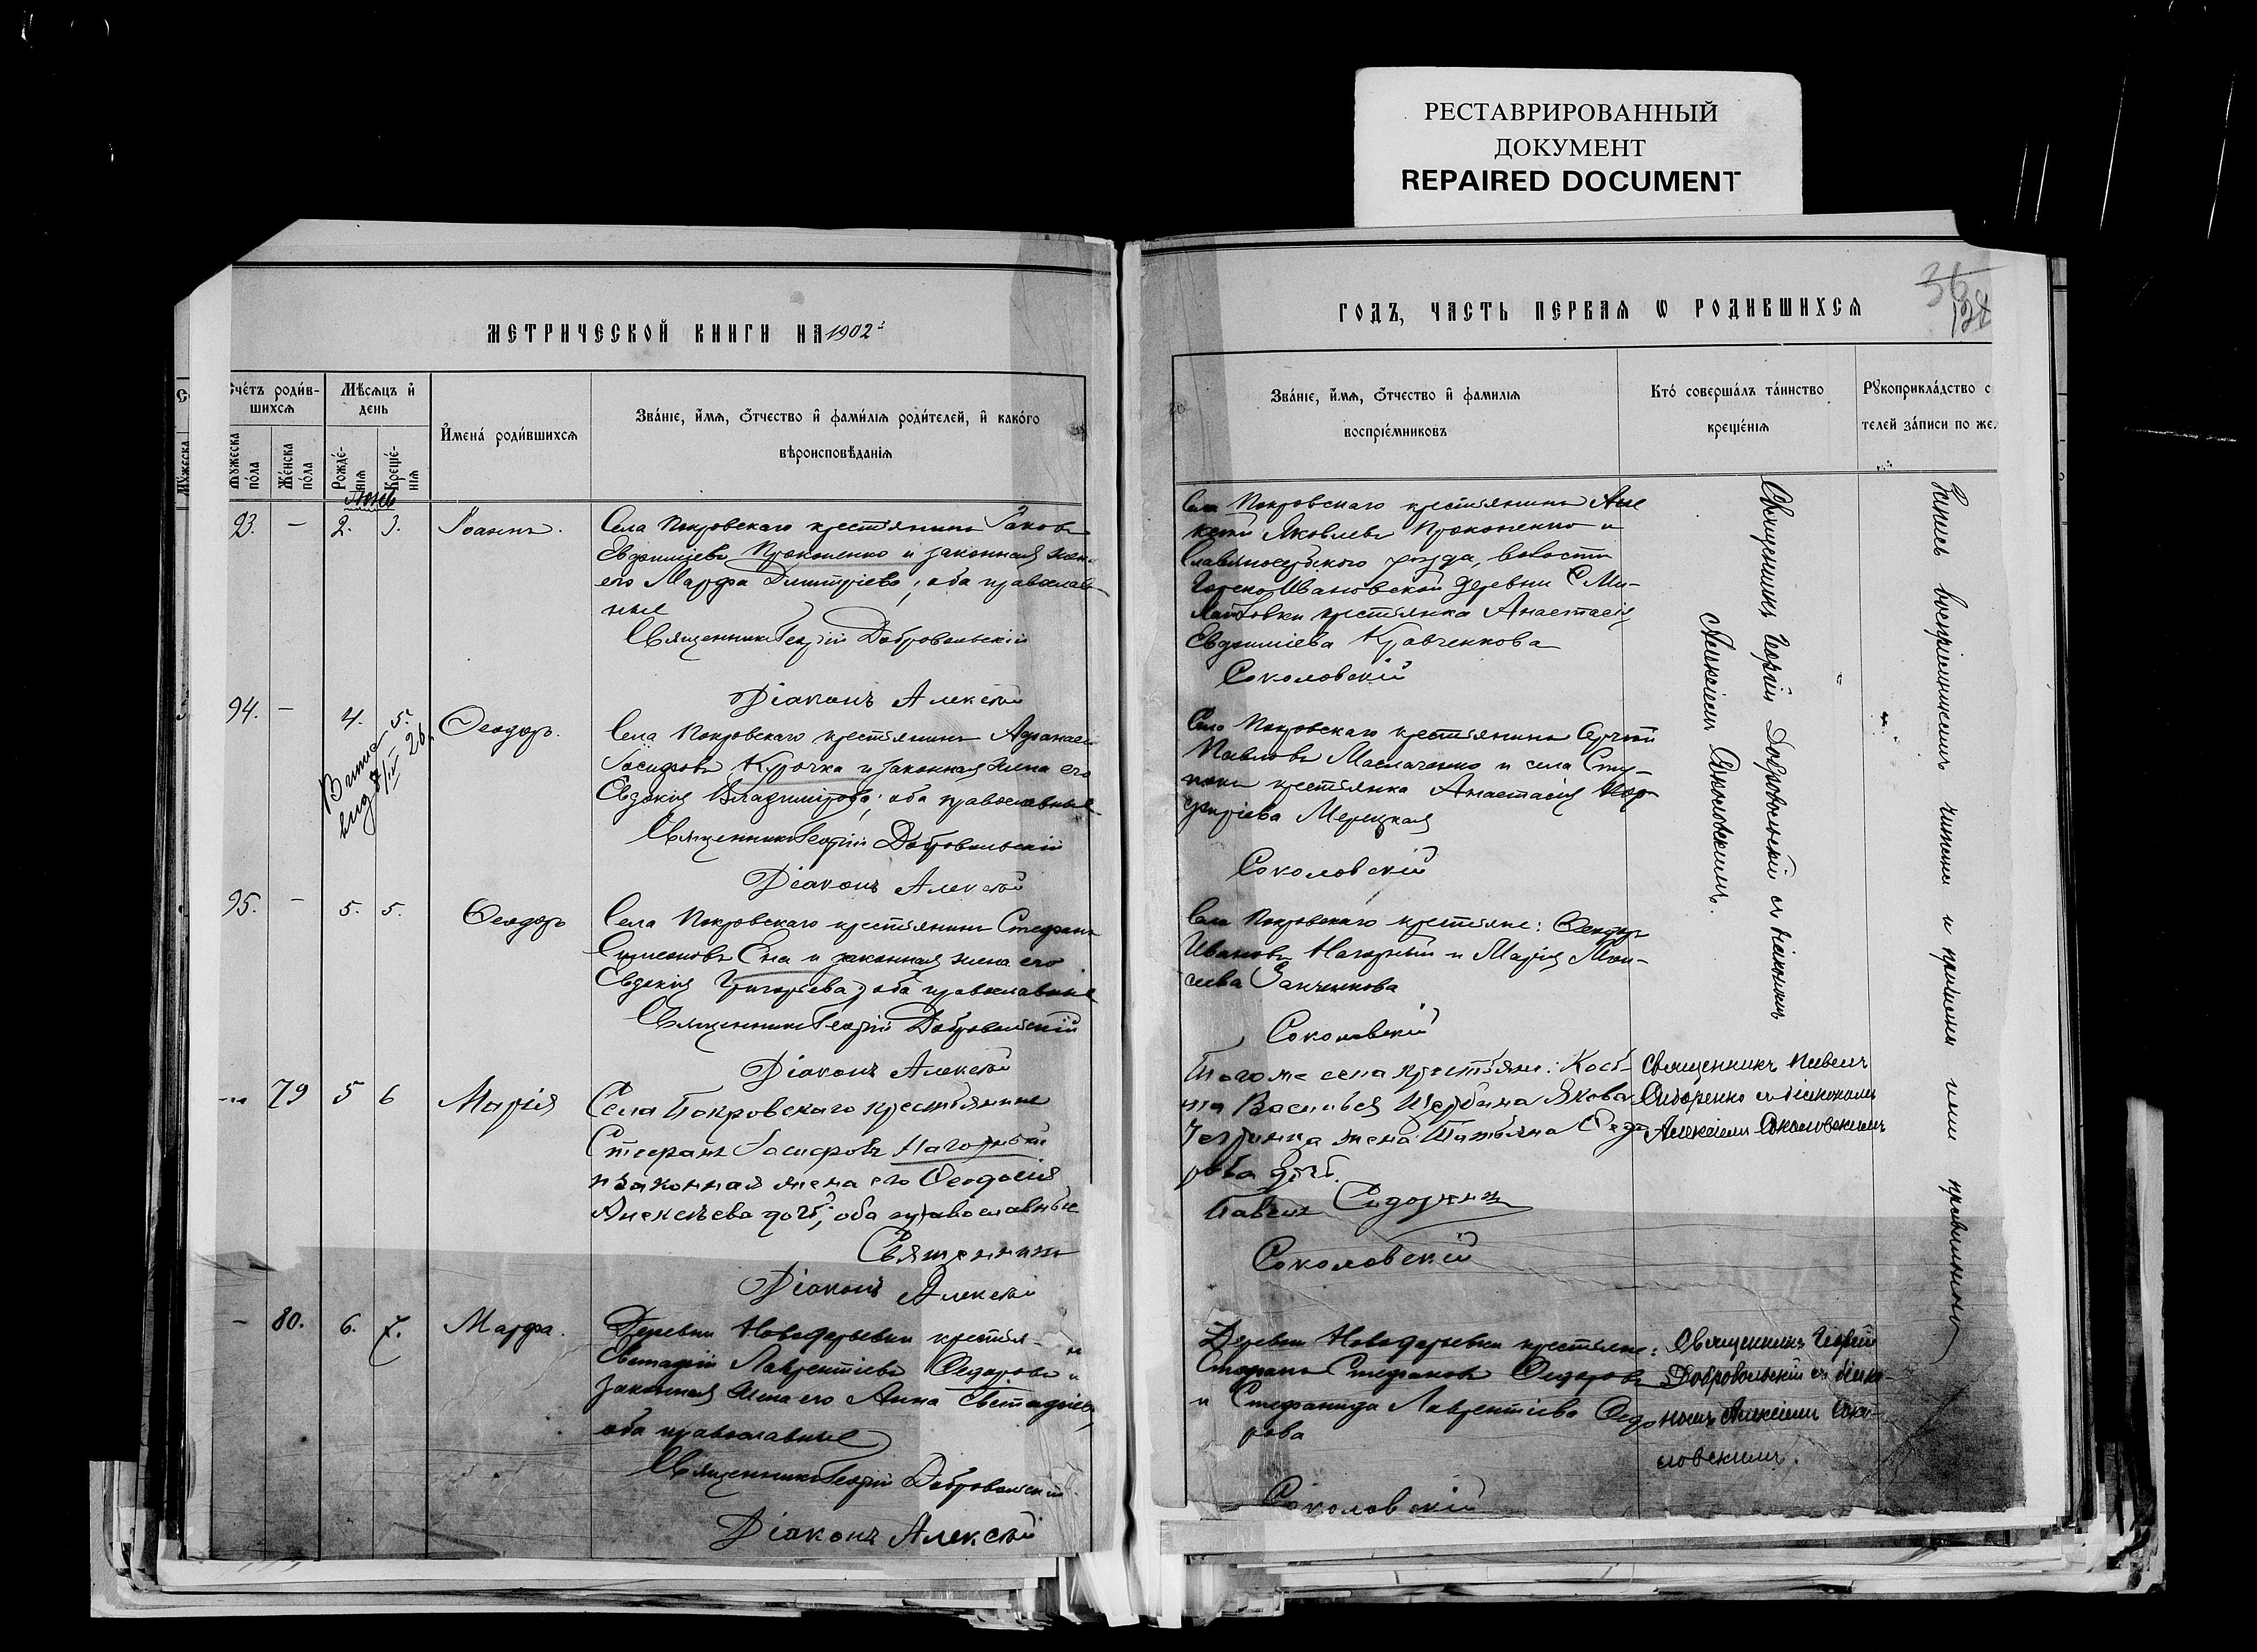 РЕСТАВРИРОВАННЫЙ
ДОКУМЕНТ
REPAIRED DOCUMENT
МЕТРИЧЕСКОЙ КНИГИ НА 1902й
Счетъ родив-
шихся
Мѣсяцъ и
день
Имена родившихся
Званіе, имя, отчество и фамилія родителей, и какого
вѣроисповѣданія
Мужеска
пола
Женска
пола
Рожде-
нія
Креще-
нія
Іюнь
93. – 2. 3. Іоаннъ.
Села Покровскаго крестьянинъ Іаковъ
Евфиміевъ Прокопенко и законная жена
его Марфа Димитріева; оба православ-
ные
Священникъ Георгій Добровольскій
Діаконъ Алексѣй
94. – 4. 5. Ѳеодоръ.
26
Села Покровскаго крестьянинъ Афанасій
Іосифовъ Курочка и законная жена его
Евдокія Владимірова; оба православные
Священникъ Георгій Добровольскій
Діаконъ Алексѣй
95. – 5. 5. Ѳеодоръ
Села Покровскаго крестьянинъ Стефанъ
Симеоновъ Ена и законная жена его
Евдокія Григорьева; оба православные
Священникъ Георгій Добровольскій
Діаконъ Алексѣй
79 5 6 Марія
Села Покровскаго крестьянинъ
Стефанъ Іосифовъ Нагорный
и законная жена его Ѳеодосія
Алексѣева дочь; оба православные
Священникъ
Діаконъ Алексѣй
– 80. 6. 7. Марфа.
Деревни Новодарьевки крестья-
Евстафій Лаврентіевъ Ѳедоровъ и
законная жена его Анна Евстафіева,
оба православные
Священникъ Георгій Добровольскій
Діаконъ Алексѣй
ГОДЪ, ЧАСТЬ ПЕРВАЯ Ѡ РОДИВШИХСЯ
36
Званіе, имя, отчество и фамилія
воспріемниковъ
Кто совершалъ таинство
крещенія
Рукоприкладство с
телей записи по же
Села Покровскаго крестьянинъ Але
ксѣй Яковлевъ Прокопенко и
Славяносербскаго уѣзда, волости
Ивановской деревни С Ми-
хайловки крестьянка Анастасія
Евфиміева Кравченкова
Соколовскій
Села Покровскаго крестьянинъ Сергѣй
Павловъ Маслаченко и села
крестьянка Анастасія Пор-
фиріева Мерецкая
Соколовскій
Села Покровскаго крестьяне: Ѳеодоръ
Ивановъ Нагорный и Марія Мои-
сеева
Соколовскій
Того же села крестьяне:
Васильевъ Щербина Якова
жена Татьяна Ѳедо
рова дочь.
Павелъ Сидоренко
Соколовскій
Деревни Новодарьевки крестьяне:
Стефанъ Стефановъ Ѳедоровъ
и Стефанида Лаврентіева Ѳедо
рова
Соколовскій
Священникъ Георгій Добровольскій съ діакономъ
Алексіемъ Соколовскимъ.
Священникъ Павелъ
Сидоренко съ діакономъ
Алексіемъ Соколовскимъ
Священникъ Георгій
Добровольскій съ діако-
номъ Алексіемъ Соко-
ловскимъ.
Запись воспріемникамъ читана и признана ими правильною